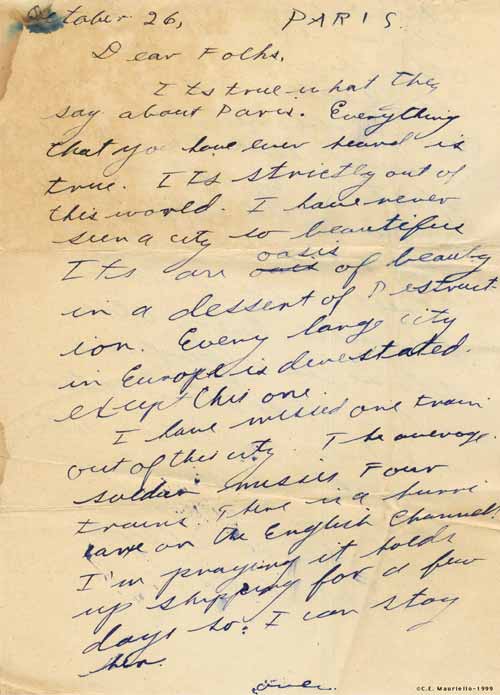 October 26, PARIS.
Dear Folks,
Its true what they
say about Paris. Everything
that you have ever heard is
true. Its strictly out of
this world. I have never
seen a city so beautiful
Its an oasis of beauty
in a dessert of Destruct-
ion. Every large city
in Europe is devestated.
except this one.
I have missed one train
out of this city. The average
soldier misses Four
trains. There is a hurri
cane on the English Channel.
I'm praying it holds
up shipping for a few
days so I can stay
her.
over.
©C.E. Mauriello-1999